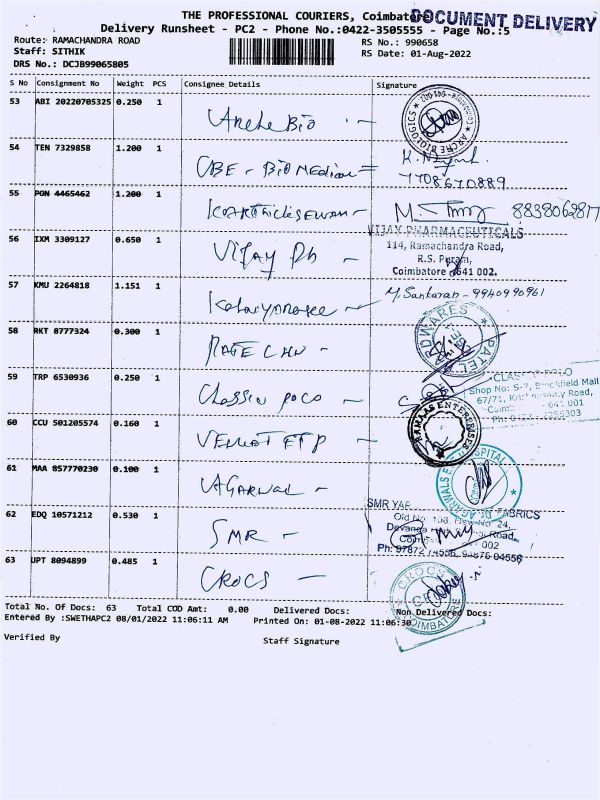 THE PROFESSIONAL COURIERS, Coimbatore
DOCUMENT DELIVERY
Delivery Runsheet - PC2 - Phone No.:0422-3505555 - Page No.:5
Route: RAMACHANDRA ROAD
RS No.: 990658
Staff: SITHIK
RS Date: 01-Aug-2022
DRS No.: DCJB99065805
S No Consignment No Weight PCS Consignee Details Signature
53 ABI 20220705325 0.250 1
54 TEN 7329858 1.200 1 CBE - BioMedical
7708670889
55 PON 4465462 1.200 1 8838062817
56 IXM 3309127 0.650 1 Vijay Ph
VIJAY PHARMACEUTICALS
114, Ramachandra Road,
R.S. Puram,
Coimbatore 641 002.
57 KMU 2264818 1.151 1 M. Sankaran - 9940990961
58 RKT 8777324 0.300 1
HARDWARES PATEL
59 TRP 6530936 0.250 1 Classic Poco
CLASSIC POLO
Shop No: S-7, Brookfield Mall
67/71, Krishnasamy Road,
641 001
60 CCU 501205574 0.160 1
RAMAAS ENTERPRISES
61 MAA 857770230 0.100 1 AGARWAL
DR. AGARWALS EYE HOSPITAL
62 EDQ 10571212 0.530 1 SMR
SMR
FABRICS
Old No: 108, New No 24,
Devanga Road,
002
Ph: 97872 74556, 94876 04556
63 UPT 8094899 0.485 1 CROCS
CROCS
COIMBATORE
Total No. Of Docs: 63 Total COD Amt: 0.00 Delivered Docs: Non Delivered Docs:
Entered By :SWETHAPC2 08/01/2022 11:06:11 AM Printed On: 01-08-2022 11:06:30
Verified By Staff Signature